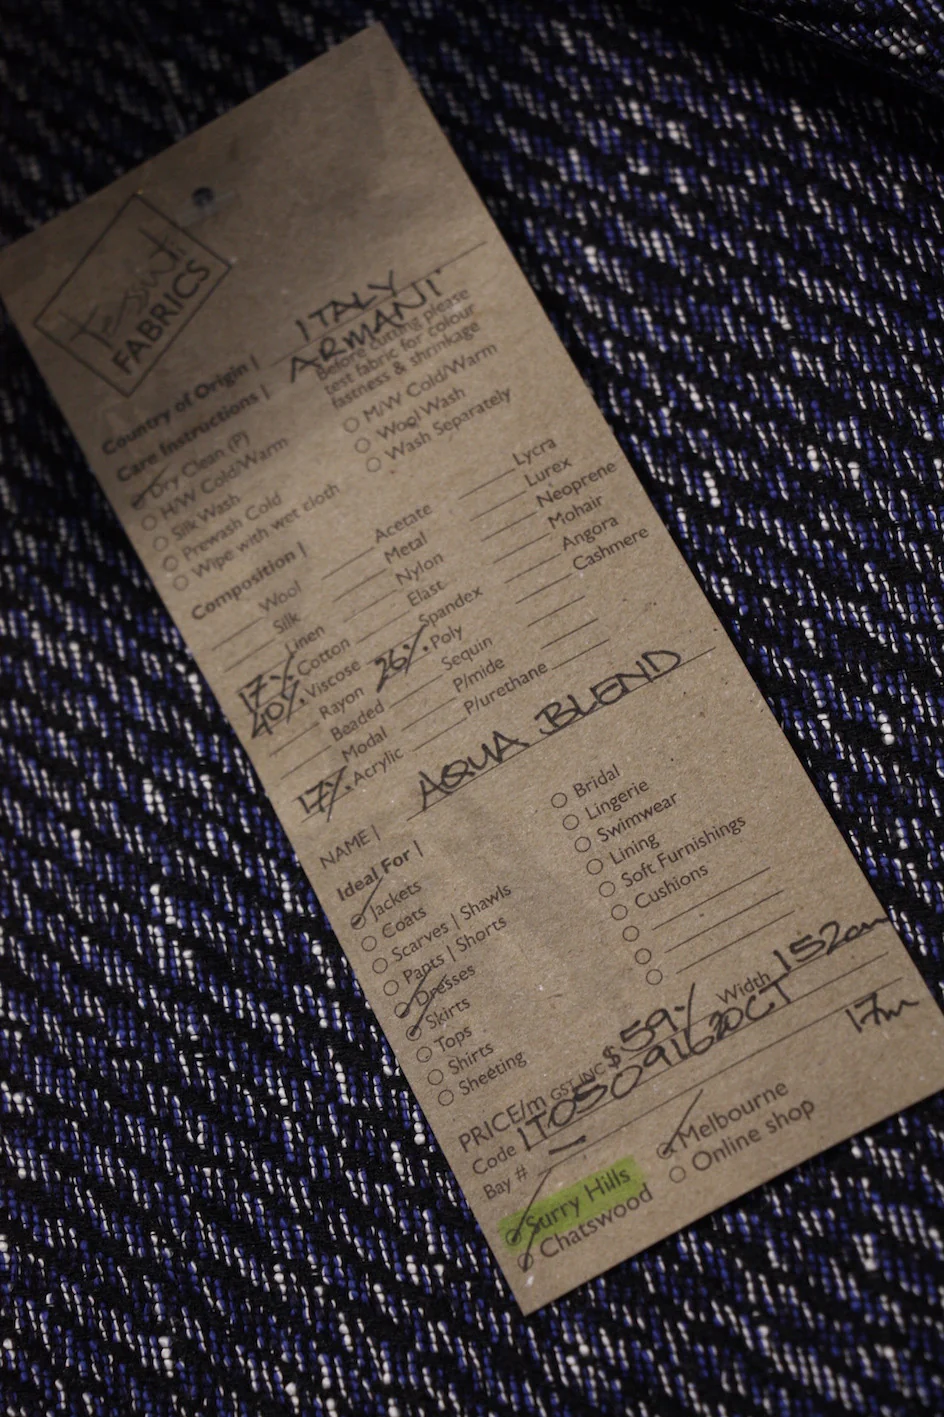 Tessuti
FABRICS
Country of Origin | ITALY
ARMANI
Care Instructions | Before cutting please
test fabric for colour
fastness & shrinkage
Dry Clean (P)
H/W Cold/Warm
Silk Wash
Prewash Cold
Wipe with wet cloth
M/W Cold/Warm
Wool Wash
Wash Separately
Composition |
Wool
Silk
Linen
17% Cotton
40% Viscose
Rayon
Beaded
Modal
17% Acrylic
Acetate
Metal
Nylon
Elast
Spandex
26% Poly
Sequin
P/mide
P/urethane
Lycra
Lurex
Neoprene
Mohair
Angora
Cashmere
NAME | AQUA BLEND
Ideal For |
Jackets
Coats
Scarves | Shawls
Pants | Shorts
Dresses
Skirts
Tops
Shirts
Sheeting
Bridal
Lingerie
Swimwear
Lining
Soft Furnishings
Cushions
PRICE/m GST INC $59.- Width 152cm
Code IT05091620CT
Bay # — 17m
Surry Hills
Chatswood
Melbourne
Online shop